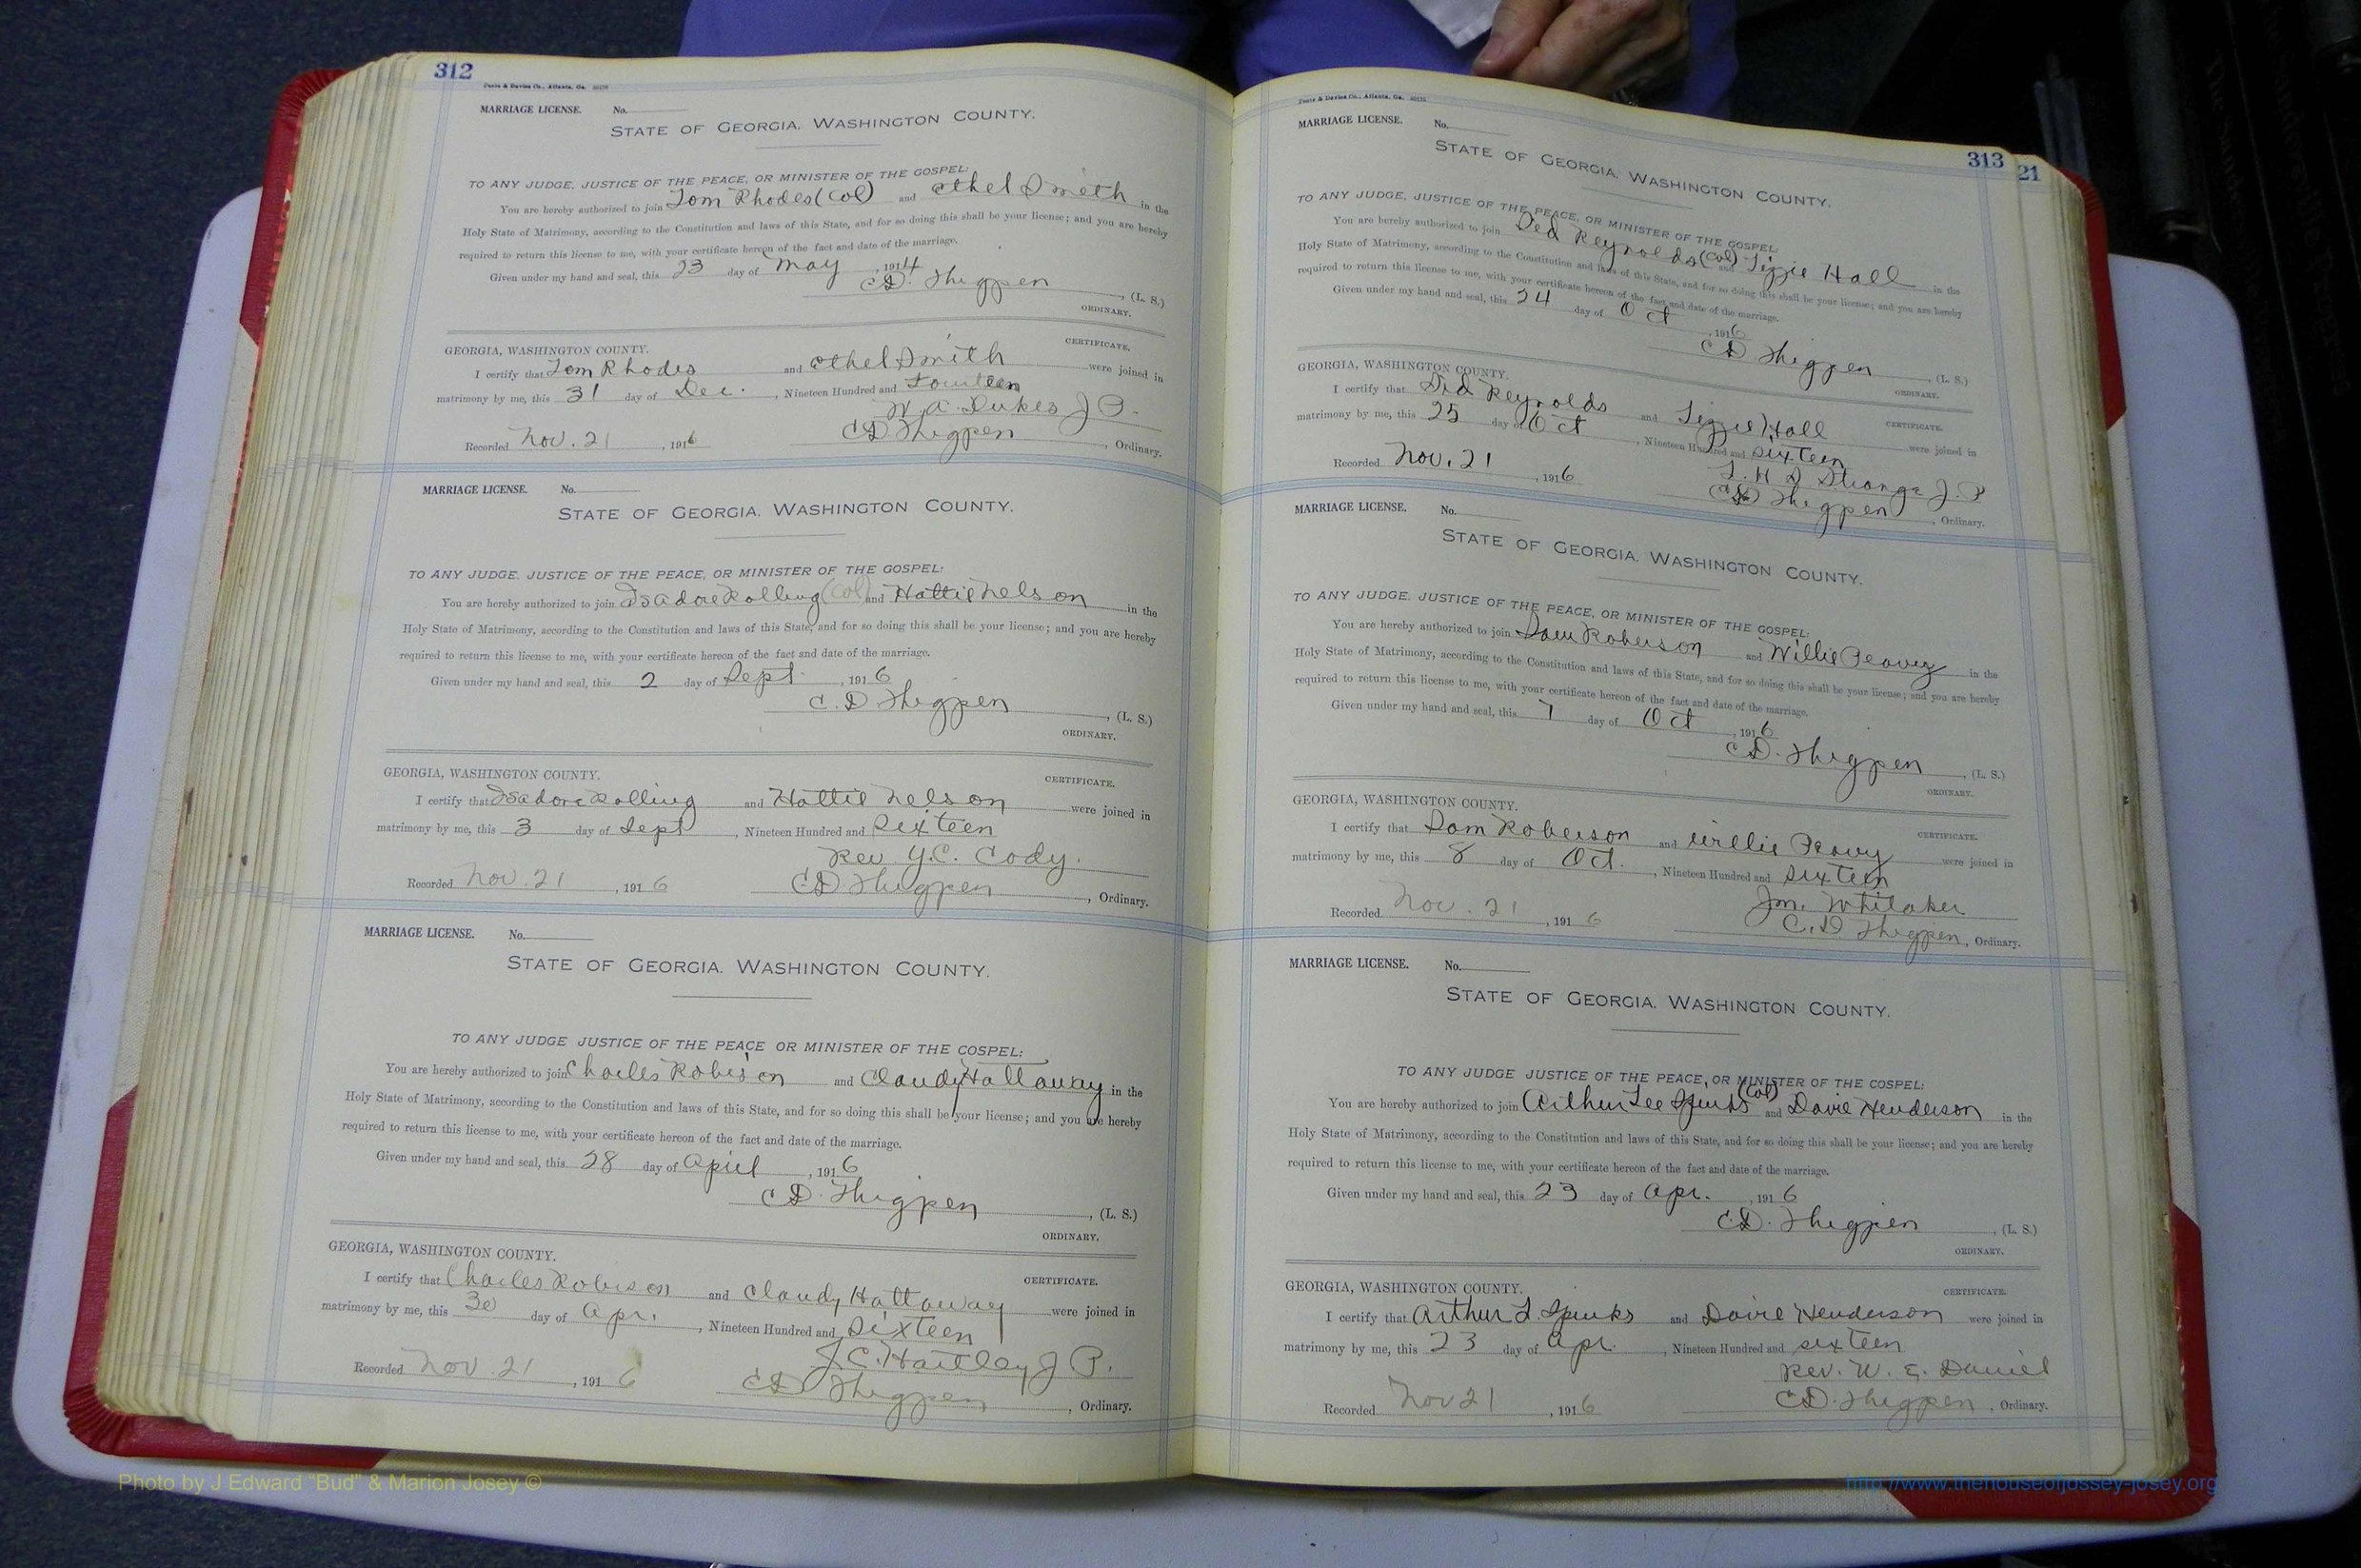 312
Foote & Davies Co., Atlanta, Ga.
MARRIAGE LICENSE. No.
STATE OF GEORGIA, WASHINGTON COUNTY.
TO ANY JUDGE, JUSTICE OF THE PEACE, OR MINISTER OF THE GOSPEL:
You are hereby authorized to join Tom Rhodes (Col) and Ethel Smith in the
Holy State of Matrimony, according to the Constitution and laws of this State, and for so doing this shall be your license; and you are hereby
required to return this license to me, with your certificate hereon of the fact and date of the marriage.
Given under my hand and seal, this 23 day of May, 1914
C.D. Thigpen, (L. S.)
ORDINARY.
GEORGIA, WASHINGTON COUNTY. CERTIFICATE.
I certify that Tom Rhodes and Ethel Smith were joined in
matrimony by me, this 31 day of Dec., Nineteen Hundred and Fourteen
W. A. Dukes J P.
Recorded Nov. 21, 1916 C D Thigpen, Ordinary.
MARRIAGE LICENSE. No.
STATE OF GEORGIA, WASHINGTON COUNTY.
TO ANY JUDGE, JUSTICE OF THE PEACE, OR MINISTER OF THE GOSPEL:
You are hereby authorized to join Isadore Rolling (Col) and Hattie Nelson in the
Holy State of Matrimony, according to the Constitution and laws of this State, and for so doing this shall be your license; and you are hereby
required to return this license to me, with your certificate hereon of the fact and date of the marriage.
Given under my hand and seal, this 2 day of Sept., 1916
C. D Thigpen, (L. S.)
ORDINARY.
GEORGIA, WASHINGTON COUNTY. CERTIFICATE.
I certify that Isadore Rolling and Hattie Nelson were joined in
matrimony by me, this 3 day of Sept, Nineteen Hundred and Sixteen
Rev Y.C. Cody.
Recorded Nov. 21, 1916 C D Thigpen, Ordinary.
MARRIAGE LICENSE. No.
STATE OF GEORGIA, WASHINGTON COUNTY.
TO ANY JUDGE JUSTICE OF THE PEACE OR MINISTER OF THE GOSPEL:
You are hereby authorized to join Charles Robison and Claudy Hattaway in the
Holy State of Matrimony, according to the Constitution and laws of this State, and for so doing this shall be your license; and you are hereby
required to return this license to me, with your certificate hereon of the fact and date of the marriage.
Given under my hand and seal, this 28 day of April, 1916
C D. Thigpen, (L. S.)
ORDINARY.
GEORGIA, WASHINGTON COUNTY. CERTIFICATE.
I certify that Charles Robison and Claudy Hattaway were joined in
matrimony by me, this 30 day of Apr., Nineteen Hundred and Sixteen
J. C. Hartley J P.
Recorded Nov. 21, 1916 C D Thigpen, Ordinary.
313
21
Foote & Davies Co., Atlanta, Ga.
MARRIAGE LICENSE. No.
STATE OF GEORGIA, WASHINGTON COUNTY.
TO ANY JUDGE, JUSTICE OF THE PEACE, OR MINISTER OF THE GOSPEL:
You are hereby authorized to join Ded Reynolds (Col) and Lizzie Hall in the
Holy State of Matrimony, according to the Constitution and laws of this State, and for so doing this shall be your license; and you are hereby
required to return this license to me, with your certificate hereon of the fact and date of the marriage.
Given under my hand and seal, this 24 day of Oct, 1916
C D. Thigpen, (L. S.)
ORDINARY.
GEORGIA, WASHINGTON COUNTY. CERTIFICATE.
I certify that Ded Reynolds and Lizzie Hall were joined in
matrimony by me, this 25 day of Oct, Nineteen Hundred and Sixteen
L. H D Strange J. P
Recorded Nov. 21, 1916 C D Thigpen, Ordinary.
MARRIAGE LICENSE. No.
STATE OF GEORGIA, WASHINGTON COUNTY.
TO ANY JUDGE, JUSTICE OF THE PEACE, OR MINISTER OF THE GOSPEL:
You are hereby authorized to join Sam Roberson and Willie Peavy in the
Holy State of Matrimony, according to the Constitution and laws of this State, and for so doing this shall be your license; and you are hereby
required to return this license to me, with your certificate hereon of the fact and date of the marriage.
Given under my hand and seal, this 7 day of Oct, 1916
C D. Thigpen, (L. S.)
ORDINARY.
GEORGIA, WASHINGTON COUNTY. CERTIFICATE.
I certify that Sam Roberson and Willie Peavy were joined in
matrimony by me, this 8 day of Oct., Nineteen Hundred and Sixteen
Jm. Whitaker
Recorded Nov. 21, 1916 C. D. Thigpen, Ordinary.
MARRIAGE LICENSE. No.
STATE OF GEORGIA, WASHINGTON COUNTY.
TO ANY JUDGE JUSTICE OF THE PEACE, OR MINISTER OF THE GOSPEL:
You are hereby authorized to join Arthur Lee Spinks (Col) and Davie Henderson in the
Holy State of Matrimony, according to the Constitution and laws of this State, and for so doing this shall be your license; and you are hereby
required to return this license to me, with your certificate hereon of the fact and date of the marriage.
Given under my hand and seal, this 23 day of Apr., 1916
C D. Thigpen, (L. S.)
ORDINARY.
GEORGIA, WASHINGTON COUNTY. CERTIFICATE.
I certify that Arthur L. Spinks and Davie Henderson were joined in
matrimony by me, this 23 day of Apr., Nineteen Hundred and sixteen
Rev. W. E. Daniel
Recorded Nov 21, 1916 C D. Thigpen, Ordinary.
Photo by J Edward "Bud" & Marion Josey ©
http://www.thehouseofjossey-josey.org